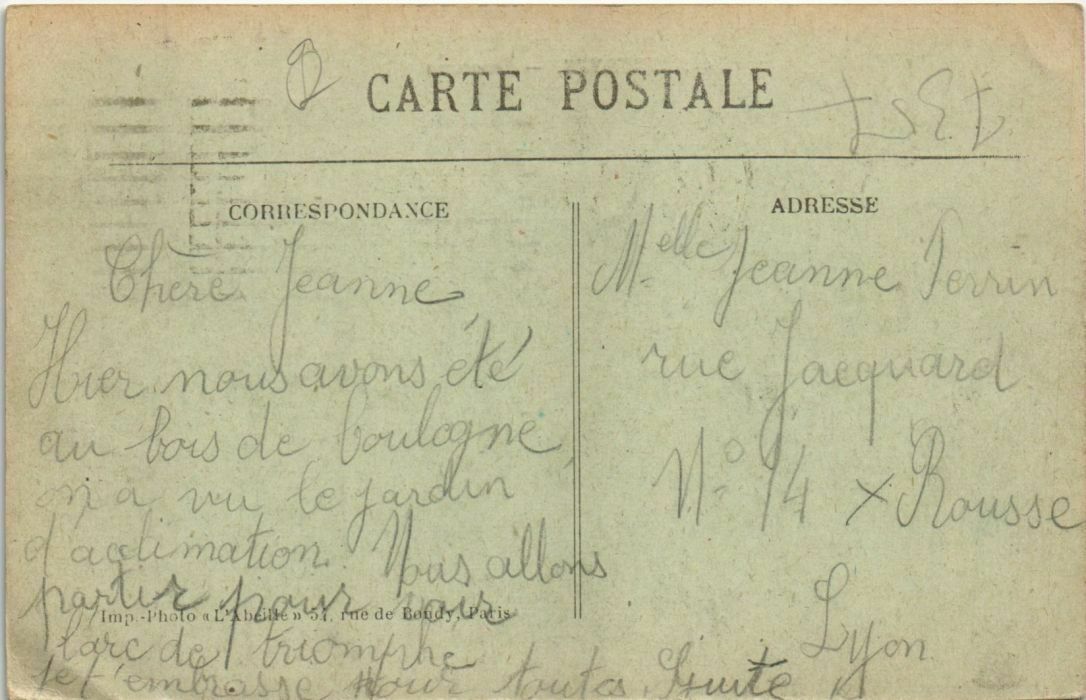 CARTE POSTALE
CORRESPONDANCE
Chère Jeanne,
Hier nous avons été
au bois de boulogne,
on a vu le jardin
d'acclimation. Nous allons
partir pour voir
Imp.-Photo «L'Abeille» 57, rue de Bondy, Paris
l'arc de triomphe
Je t'embrasse pour toutes
ADRESSE
Melle Jeanne Perrin
rue Jacquard
No 14 x Rousse
Lyon